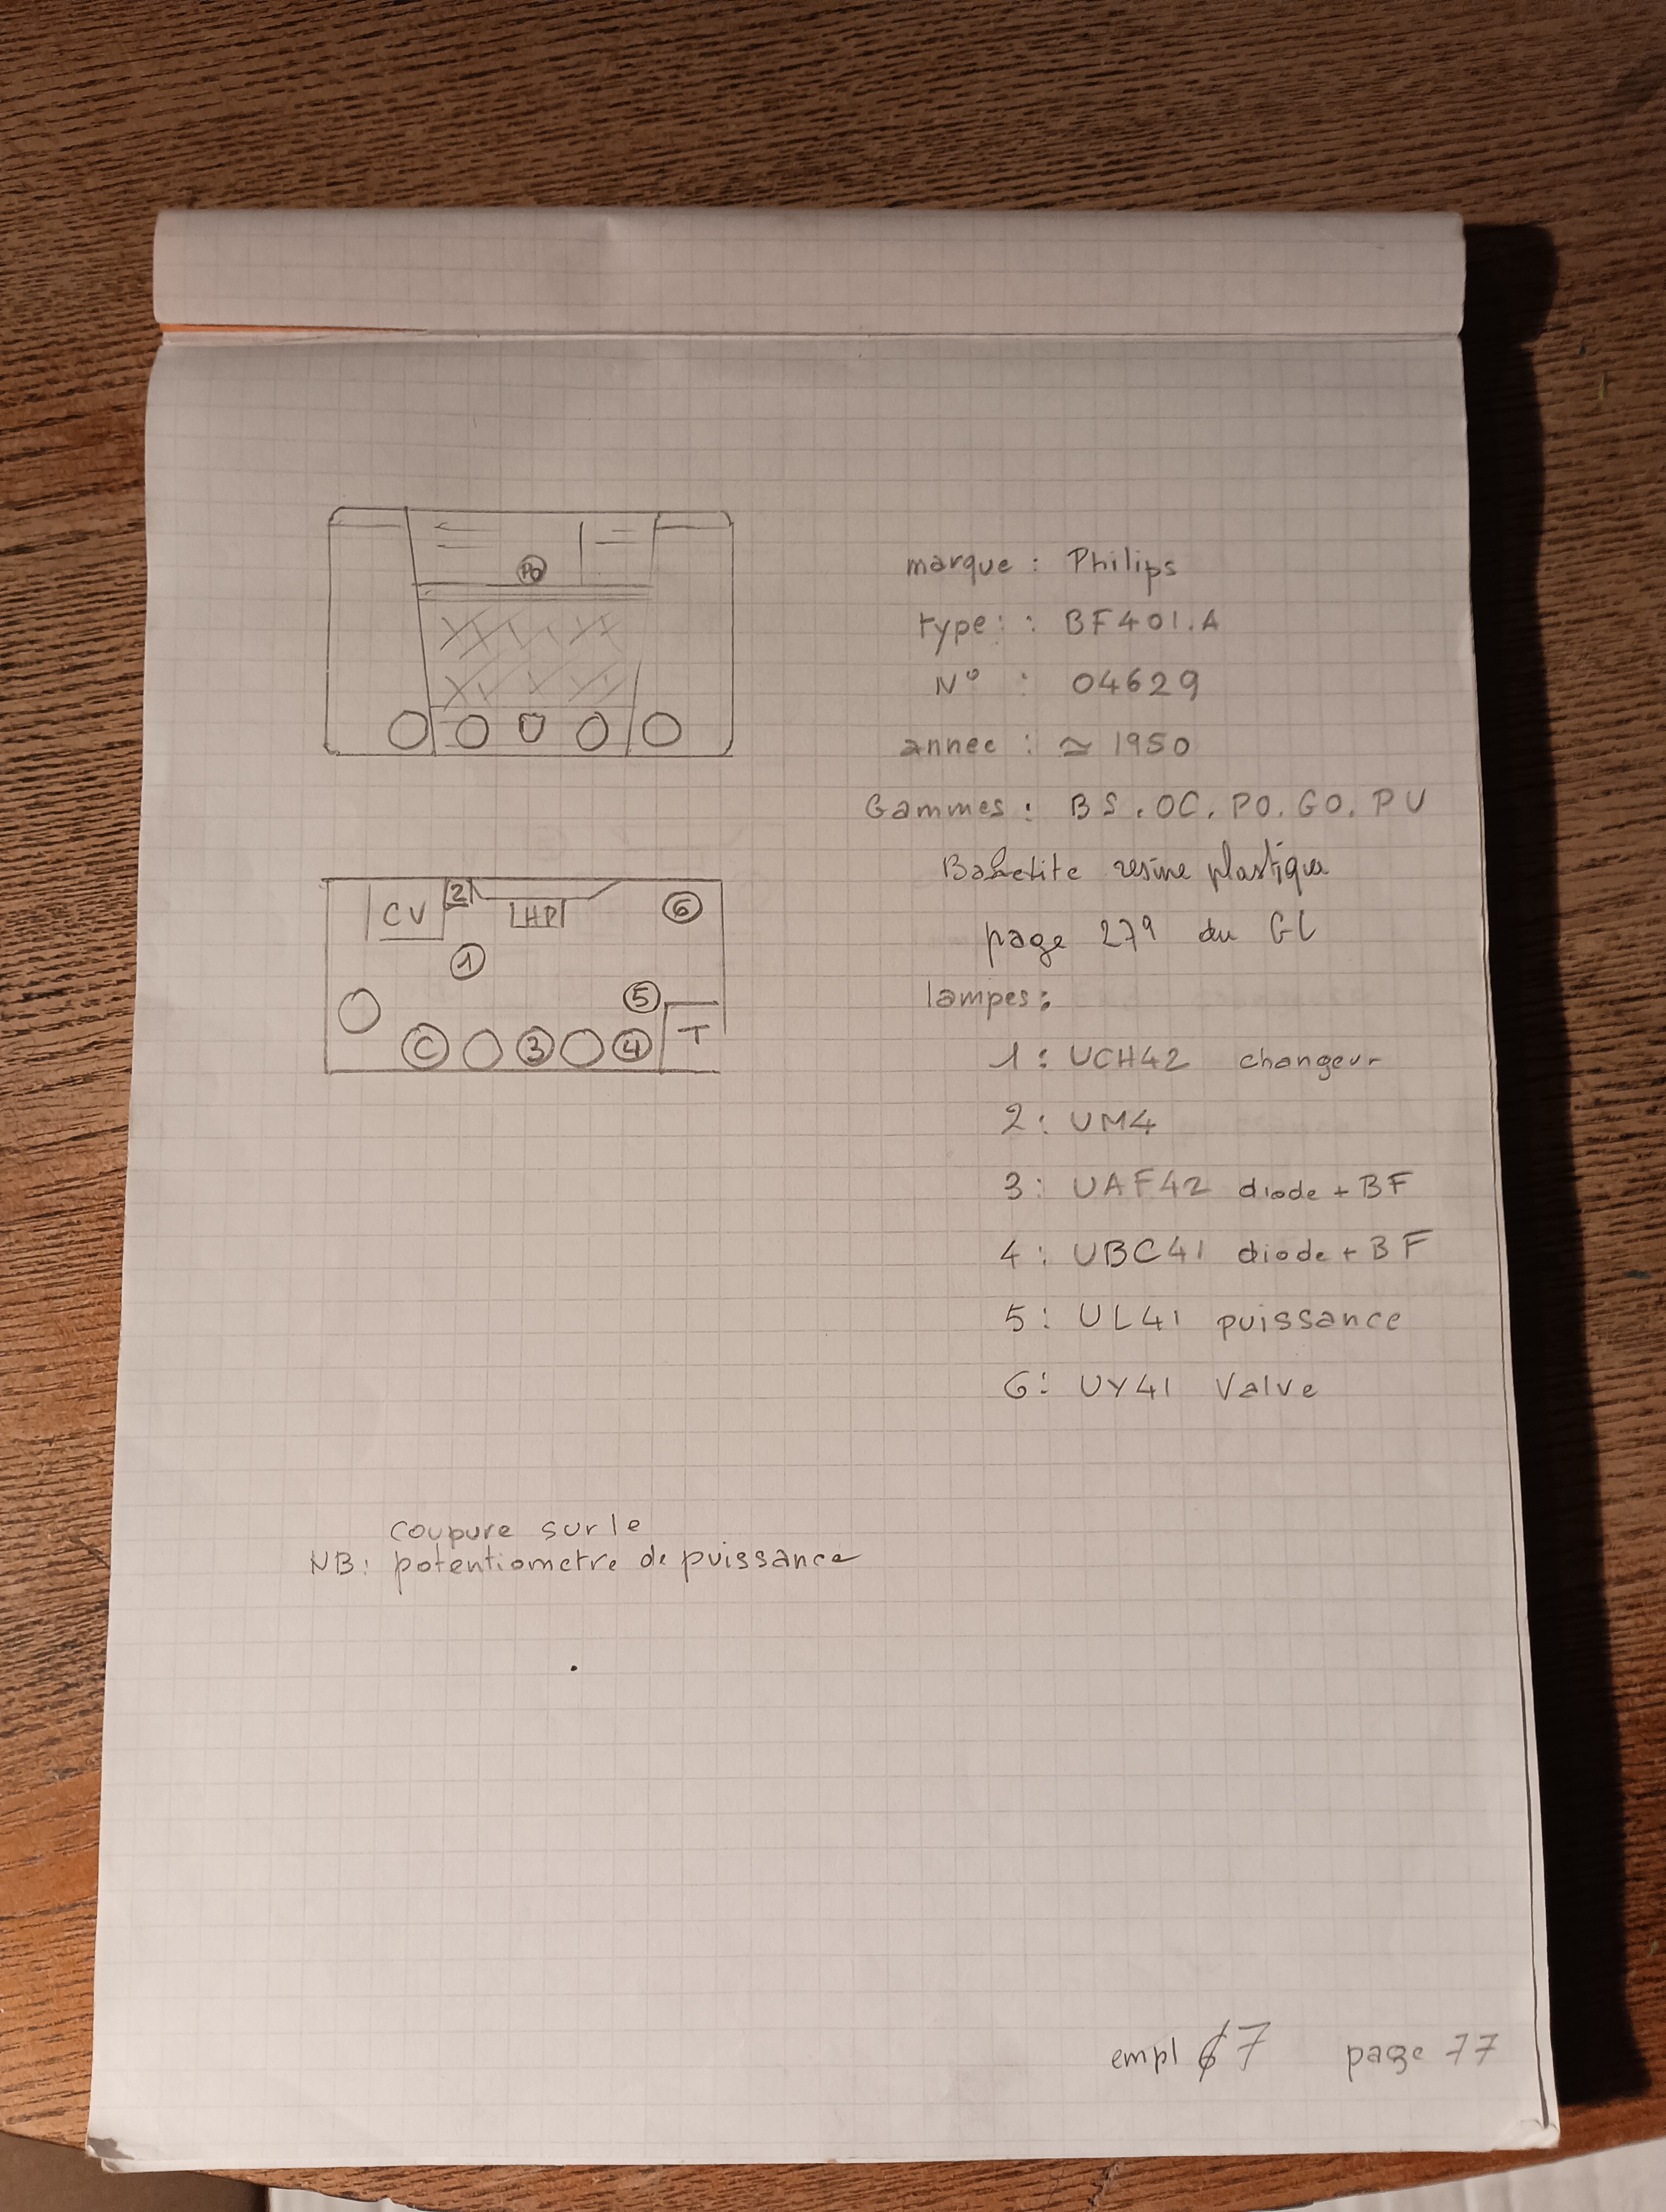 Po
marque : Philips
type : : BF401.A
N° : 04629
annee : ≃ 1950
Gammes : BS.OC.PO.GO.PU
Bakelite resine plastique
page 279 du GL
lampes :
1 : UCH42 changeur
2 : UM4
3 : UAF42 diode + BF
4 : UBC41 diode + BF
5 : UL41 puissance
6 : UY41 Valve
CV 2 HP 6
1
5
C 3 4 T
coupure sur le
NB : potentiometre de puissance
empl 7 page 77